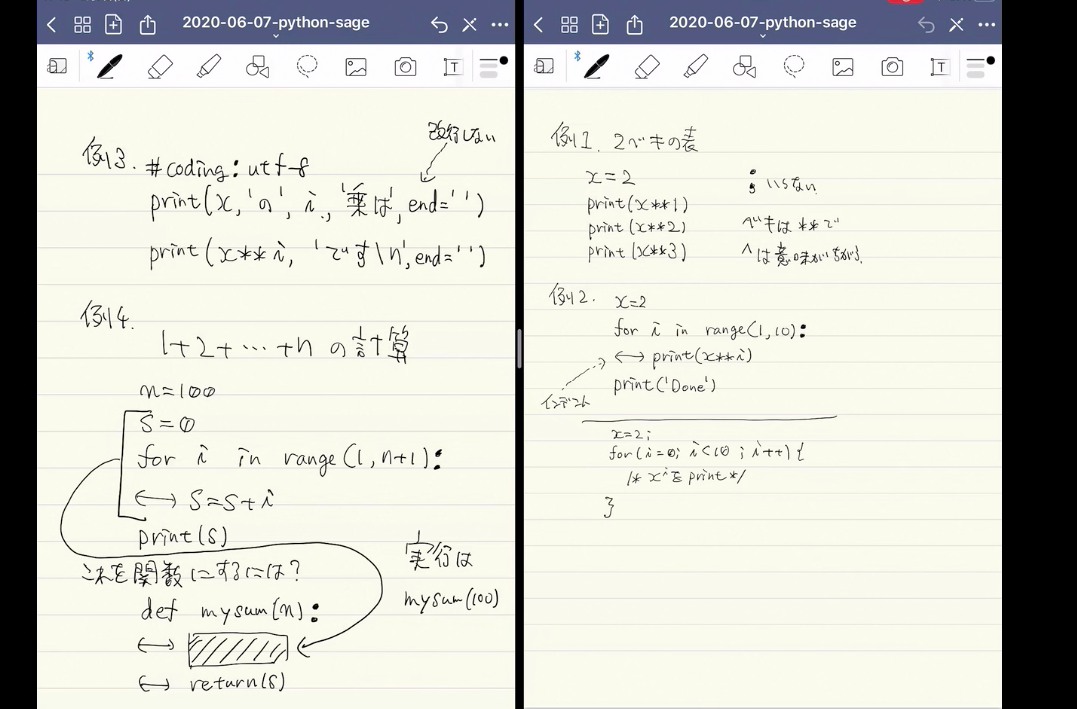 2020-06-07-python-sage
例3. #coding: utf-8
改行しない
print(x, 'の', i, '乗は', end='')
print(x**i, 'です\n', end='')
例4.
1+2+…+nの計算
n=100
S=0
for i in range(1, n+1):
↔ S=S+i
print(S)
これを関数にするには?
def mysum(n):
↔
↔ return(S)
実行は
mysum(100)
2020-06-07-python-sage
例1. 2ベキの表
x=2
: いらない
print(x**1)
print(x**2)
ベキは**で
print(x**3)
^は意味がちがう.
例2. x=2
for i in range(1,10):
↔ print(x**i)
print('Done')
インデント
x=2;
for(i=0; i<10; i++){
/* xⁱをprint */
}